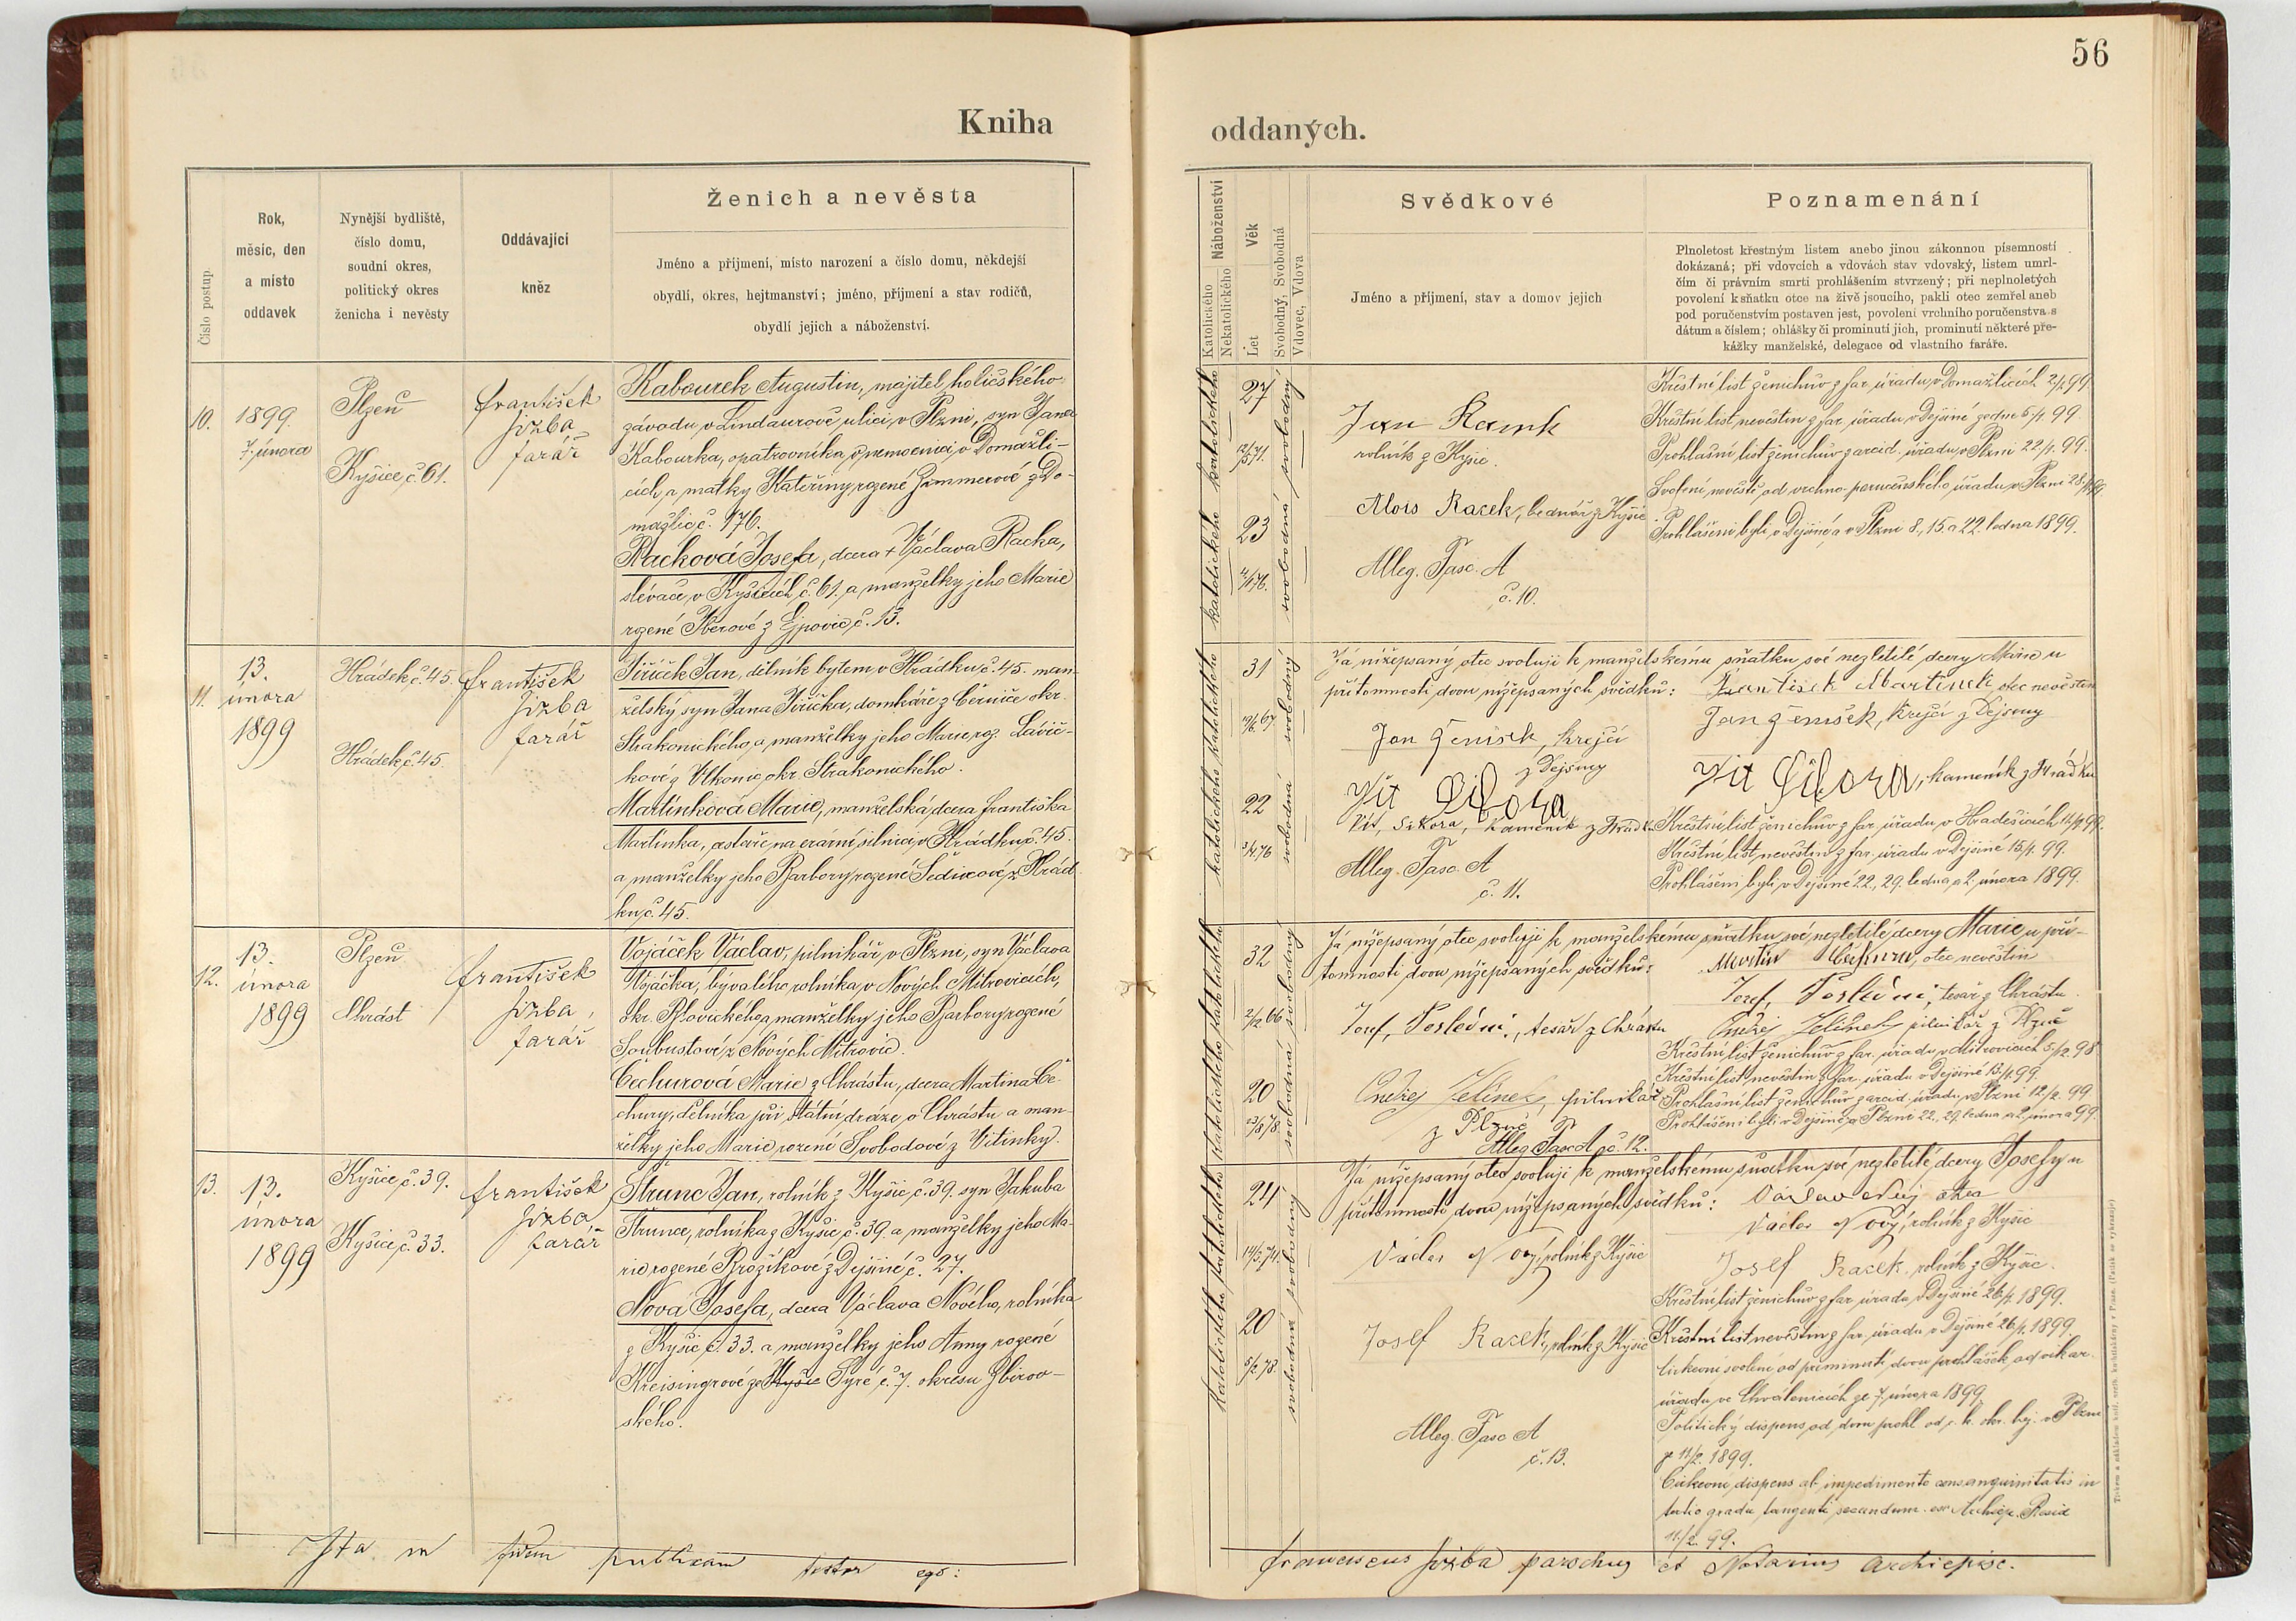 56
Kniha
oddaných.
Číslo postup.
Rok,
měsíc, den
a místo
oddavek
Nynější bydliště,
číslo domu,
soudní okres,
politický okres
ženicha i nevěsty
Oddávající
kněz
Ženich a nevěsta
Jméno a příjmení, místo narození a číslo domu, někdejší
obydlí, okres, hejtmanství; jméno, příjmení a stav rodičů,
obydlí jejich a náboženství.
Katolického
Nekatolického
Náboženství
Věk
Let
Svobodný, Svobodná
Vdovec, Vdova
Svědkové
Jméno a příjmení, stav a domov jejich
Poznamenání
Plnoletost křestným listem anebo jinou zákonnou písemností
dokázaná; při vdovcích a vdovách stav vdovský, listem umrl-
čím či právním smrti prohlášením stvrzený; při neplnoletých
povolení k sňatku otce na živě jsoucího, pakli otec zemřel aneb
pod poručenstvím postaven jest, povolení vrchního poručenstva s
dátum a číslem; ohlášky či prominutí jich, prominutí některé pře-
kážky manželské, delegace od vlastního faráře.
10.
1899.
7. února
Plzeň
Kyšice, č. 61.
František
Jizba
farář
Kabourek Augustin, majitel holičského
závodu v Lindaurově ulici v Plzni, syn Jana
Kabourka, opatrovníka v nemocnici v Domažli-
cích, a matky Kateřiny rozené Zimmerové z Do-
mažlic č. 176.
Racková Josefa, dcera + Václava Racka,
slévače v Kyšicích č. 61. a manželky jeho Marie
rozené Iberové z Ejpovic č. 13.
katolického katolického
27
12/5 71.
23
4/1 76.
svobodná svobodný
Jan Racek
rolník z Kyšic.
Alois Racek, bednář z Kyšic.
Alleg. Fasc. A
č. 10.
Křestní list ženichův z far. úřadu v Domažlicích 2/1 99
Křestní list nevěstin z far. úřadu v Dejšině ze dne 5/1 99.
Prohlašní list ženichův z arcid. úřadu v Plzni 22/1. 99.
Svolení nevěstě od vrchno-poručenského úřadu v Plzni 28/1 99
Prohlášeni byli v Dejšině a v Plzni 8., 15. a 22. ledna 1899.
11.
13.
února
1899
Hrádek, č. 45.
Hrádek č. 45.
František
Jizba
farář
Jiřiček Jan, dělník bytem v Hrádku č. 45. man-
želský syn Jana Jiřička, domkáře z Černíče okr.
Strakonického, a manželky jeho Marie roz. Lávič-
kové z Vlkonic, okr. Strakonického.
Martínková Marie, manželská dcera Františka
Martínka, cestáře na erární silnici v Hrádku č. 45.
a manželky jeho Barbory rozené Šedivcové z Hrád-
ku č. 45.
katolického katolického
31
19/6. 67
22
3/4 76
svobodná svobodný
Já nížepsaný otec svoluji k manželskému sňatku své nezletilé dcery Marie u
přítomnosti dvou nížepsaných svědků: František Martinek otec nevěstin
Jan Jeníšek, krejčí z Dejšiny
Jan Jeníšek, krejčí
z Dejšiny
Vít Sikora, kameník z Hrádku
Vít Sikora
Vít, Sikora, kameník z Hrádku
Alleg. Fasc. A
č. 11.
Křestní list ženichův z far. úřadu v Hradešicích 14/1 99.
Křestní list nevěstin z far. úřadu v Dejšině 15/1. 99.
Prohlášeni byli v Dejšině 22., 29. ledna a 2. února 1899.
12.
13.
února
1899
Plzeň
Chrást
František
Jizba,
farář
Vojáček Václav, pilnikář v Plzni, syn Václava
Vojáčka, bývalého rolníka v Nových Mitrovicích,
okr. Blovického a manželky jeho Barbory rozené
Soukustové z Nových Mitrovic.
Čechurová Marie z Chrástu, dcera Martina Če-
chury, dělníka při státní dráze v Chrástu a man-
želky jeho Marie, rozené Svobodové z Vitinky.
katolického katolického
32
2/2 66
20
23/8 78
svobodná svobodný
Já nížepsaný otec svoluji k manželskému sňatku své nezletilé dcery Marie u pří-
tomnosti dvou nížepsaných svědků: Martin Čechura, otec nevěstin
Josef, Poslední, tesař z Chrástu
Josef, Poslední, tesař z Chrástu
Ondřej Jelínek pilnikář z Plzně
Ondřej Jelínek, pilnikář
z Plzně
Alleg. Fasc. A č. 12.
Křestní list ženichův z far. úřadu v Mitrovicích 5/12. 98
Křestní list nevěstin z far. úřadu v Dejšině 13/1. 99.
Prohlašní list ženichův z arcid. úřadu v Plzni 12/2. 99
Prohlášeni byli v Dejšině a Plzni 22., 29. ledna a 2. února 99.
13.
13.
února
1899
Kyšice, č. 39.
Kyšice, č. 33.
František
Jizba
farář
Štrunc Jan, rolník z Kyšic, č. 39. syn Jakuba
Štrunce, rolníka z Kyšic, č. 39. a manželky jeho Ma-
rie rozené Brožíkové z Dejšině č. 27.
Nová Josefa, dcera Václava Nového, rolníka
z Kyšic č. 33. a manželky jeho Anny rozené
Kreisingrové ze Kyšic Syré č. 7. okresu Zbirov-
ského.
katolického katolického
24
14/5. 74.
20
5/2 78
svobodná svobodný
Já nížepsaný otec svoluji k manželskému sňatku své nezletilé dcery Josefy u
přítomnosti dvou nížepsaných svědků: Václav Nový otec
Václav Nový, rolník z Kyšic
Václav Nový, rolník z Kyšic
Josef Racek, rolník z Kyšic.
Josef Racek, rolník z Kyšic
Alleg. Fasc A
č. 13.
Křestní list ženichův z far. úřadu v Dejšině 26/1. 1899.
Křestní list nevěstin z far. úřadu v Dejšině 26/1. 1899.
Církevní svolení od prominutí dvou prohlášek od vikar.
úřadu ve Chválenicích ze 7. února 1899.
Politický dispens od dvou prohl. od c. k. okr. hej. v Plzni
ze 11/2. 1899.
Církevní dispens ab impedimento consanguinitatis in
tertio gradu tangenti secundum
11/2. 99.
Ita in fidem publicam testor ego:
Franciscus Jizba parochus et Notarius Archiepisc.